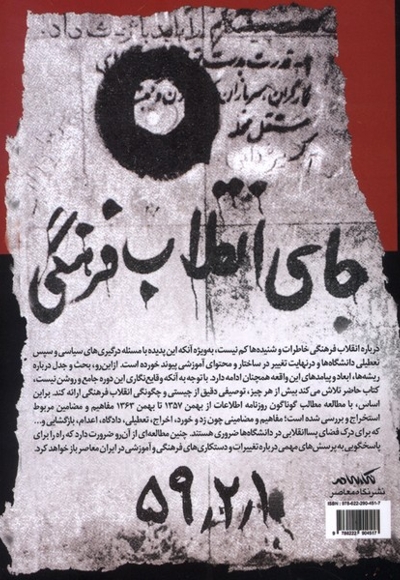 کارگران، سربازان
مستقل خلق
جای انقلاب فرهنگی
درباره انقلاب فرهنگی خاطرات و شنیده‌ها کم نیست، به‌ویژه آنکه این پدیده با مسئله درگیری‌های سیاسی و سپس
تعطیلی دانشگاه‌ها و درنهایت تغییر در ساختار و محتوای آموزشی پیوند خورده است. ازاین‌رو، بحث و جدل درباره
ریشه‌ها، ابعاد و پیامدهای این واقعه همچنان ادامه دارد. با توجه به آنکه وقایع‌نگاری این دوره جامع و روشن نیست،
کتاب حاضر تلاش می‌کند بیش از هر چیز، توصیفی دقیق از چیستی و چگونگی انقلاب فرهنگی ارائه کند. بر این
اساس، با مطالعه مطالب گوناگون روزنامه اطلاعات از بهمن ۱۳۵۷ تا بهمن ۱۳۶۳ مفاهیم و مضامین مربوط
استخراج و بررسی شده است؛ مفاهیم و مضامینی چون زد و خورد، اخراج، تعطیلی، دادگاه، اعدام، بازگشایی و...
که برای درک فضای پساانقلابی در دانشگاه‌ها ضروری هستند. چنین مطالعه‌ای از آن‌رو ضرورت دارد که راه را برای
پاسخگویی به پرسش‌های مهمی درباره تغییرات و دستکاری‌های فرهنگی و آموزشی در ایران معاصر باز خواهد کرد.
۵۹٫۲٫۱
نشر نگاه معاصر
ISBN: 978-622-290-491-7
9 786222 904917